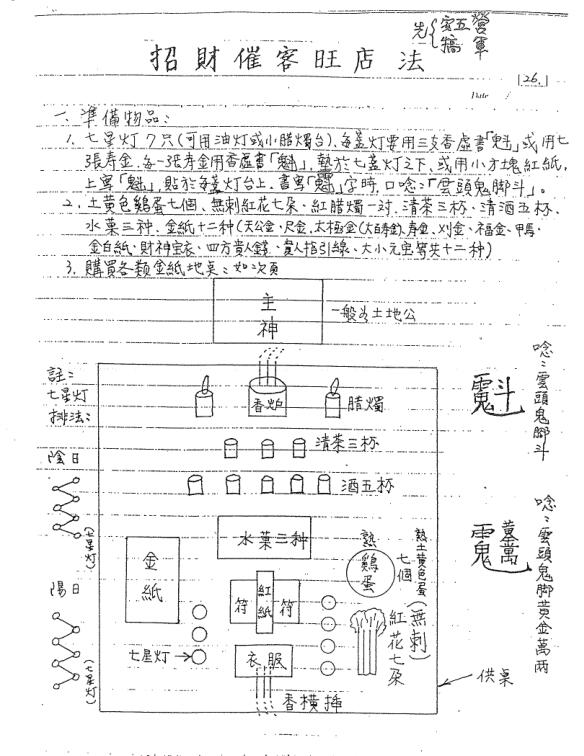 先{安五營
犒軍
招財催客旺店法
126.
Date
一、準備物品:
1. 七星灯7只(可用油灯或小腊燭台)、每盞灯要用三支香虛書「魁」或用七
張寿金、每一張寿金用香虛書「魁」、墊於七盞灯之下、或用小方塊紅紙、
上寫「魁」、貼於每盞灯台上、書寫「魁」字時、口唸:「雲頭鬼脚斗」。
2. 土黄色鷄蛋七個、無刺紅花七朵、紅腊燭一对、清茶三杯、清酒五杯、
水菓三种、金紙十二种(天公金、尺金、太極金(大百寿金)、寿金、刈金、福金、甲馬、
金白紙、財神宝衣、四方貴人錢、貴人指引線、大小元宝等共十二种)
3. 購買各類金紙地桌:如次頁
主神
一般為土地公
註:
七星灯
排法:
香炉
腊燭
清茶三杯
陰日
酒五杯
(七星灯)
水菓三种
金紙
熟鷄蛋七個
熟土黄色蛋
陽日
符
紅紙
符
紅花七朵(無刺)
七星灯→
(七星灯)
衣服
香橫挿
供桌
斗
唸:雲頭鬼脚斗
唸:雲頭鬼脚黄金萬兩